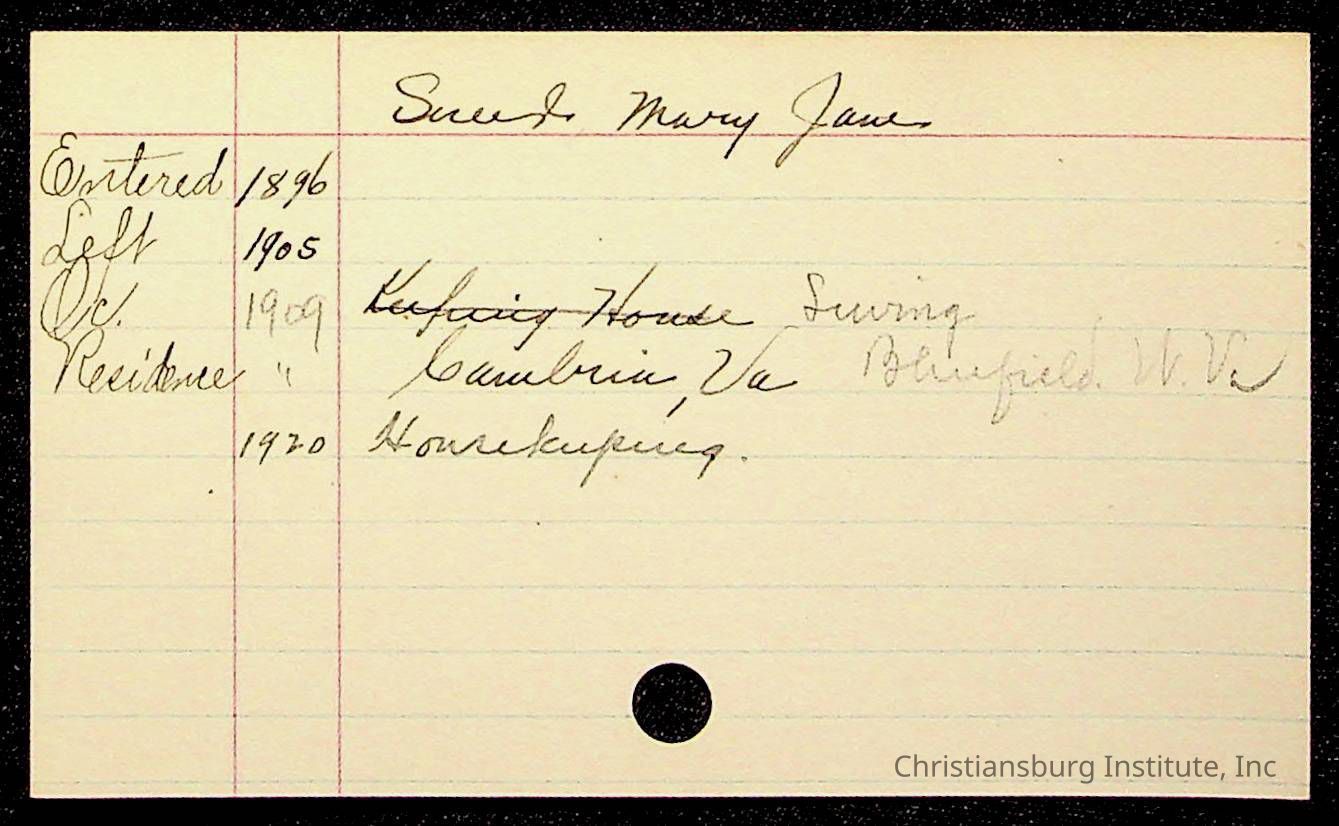 Sneed Mary Jane
Entered 1896
Left 1905
Oc. 1909 Keeping House Sewing
Residence " Cambria, Va Bluefield. W. Va
1920 Housekeeping.
Christiansburg Institute, Inc